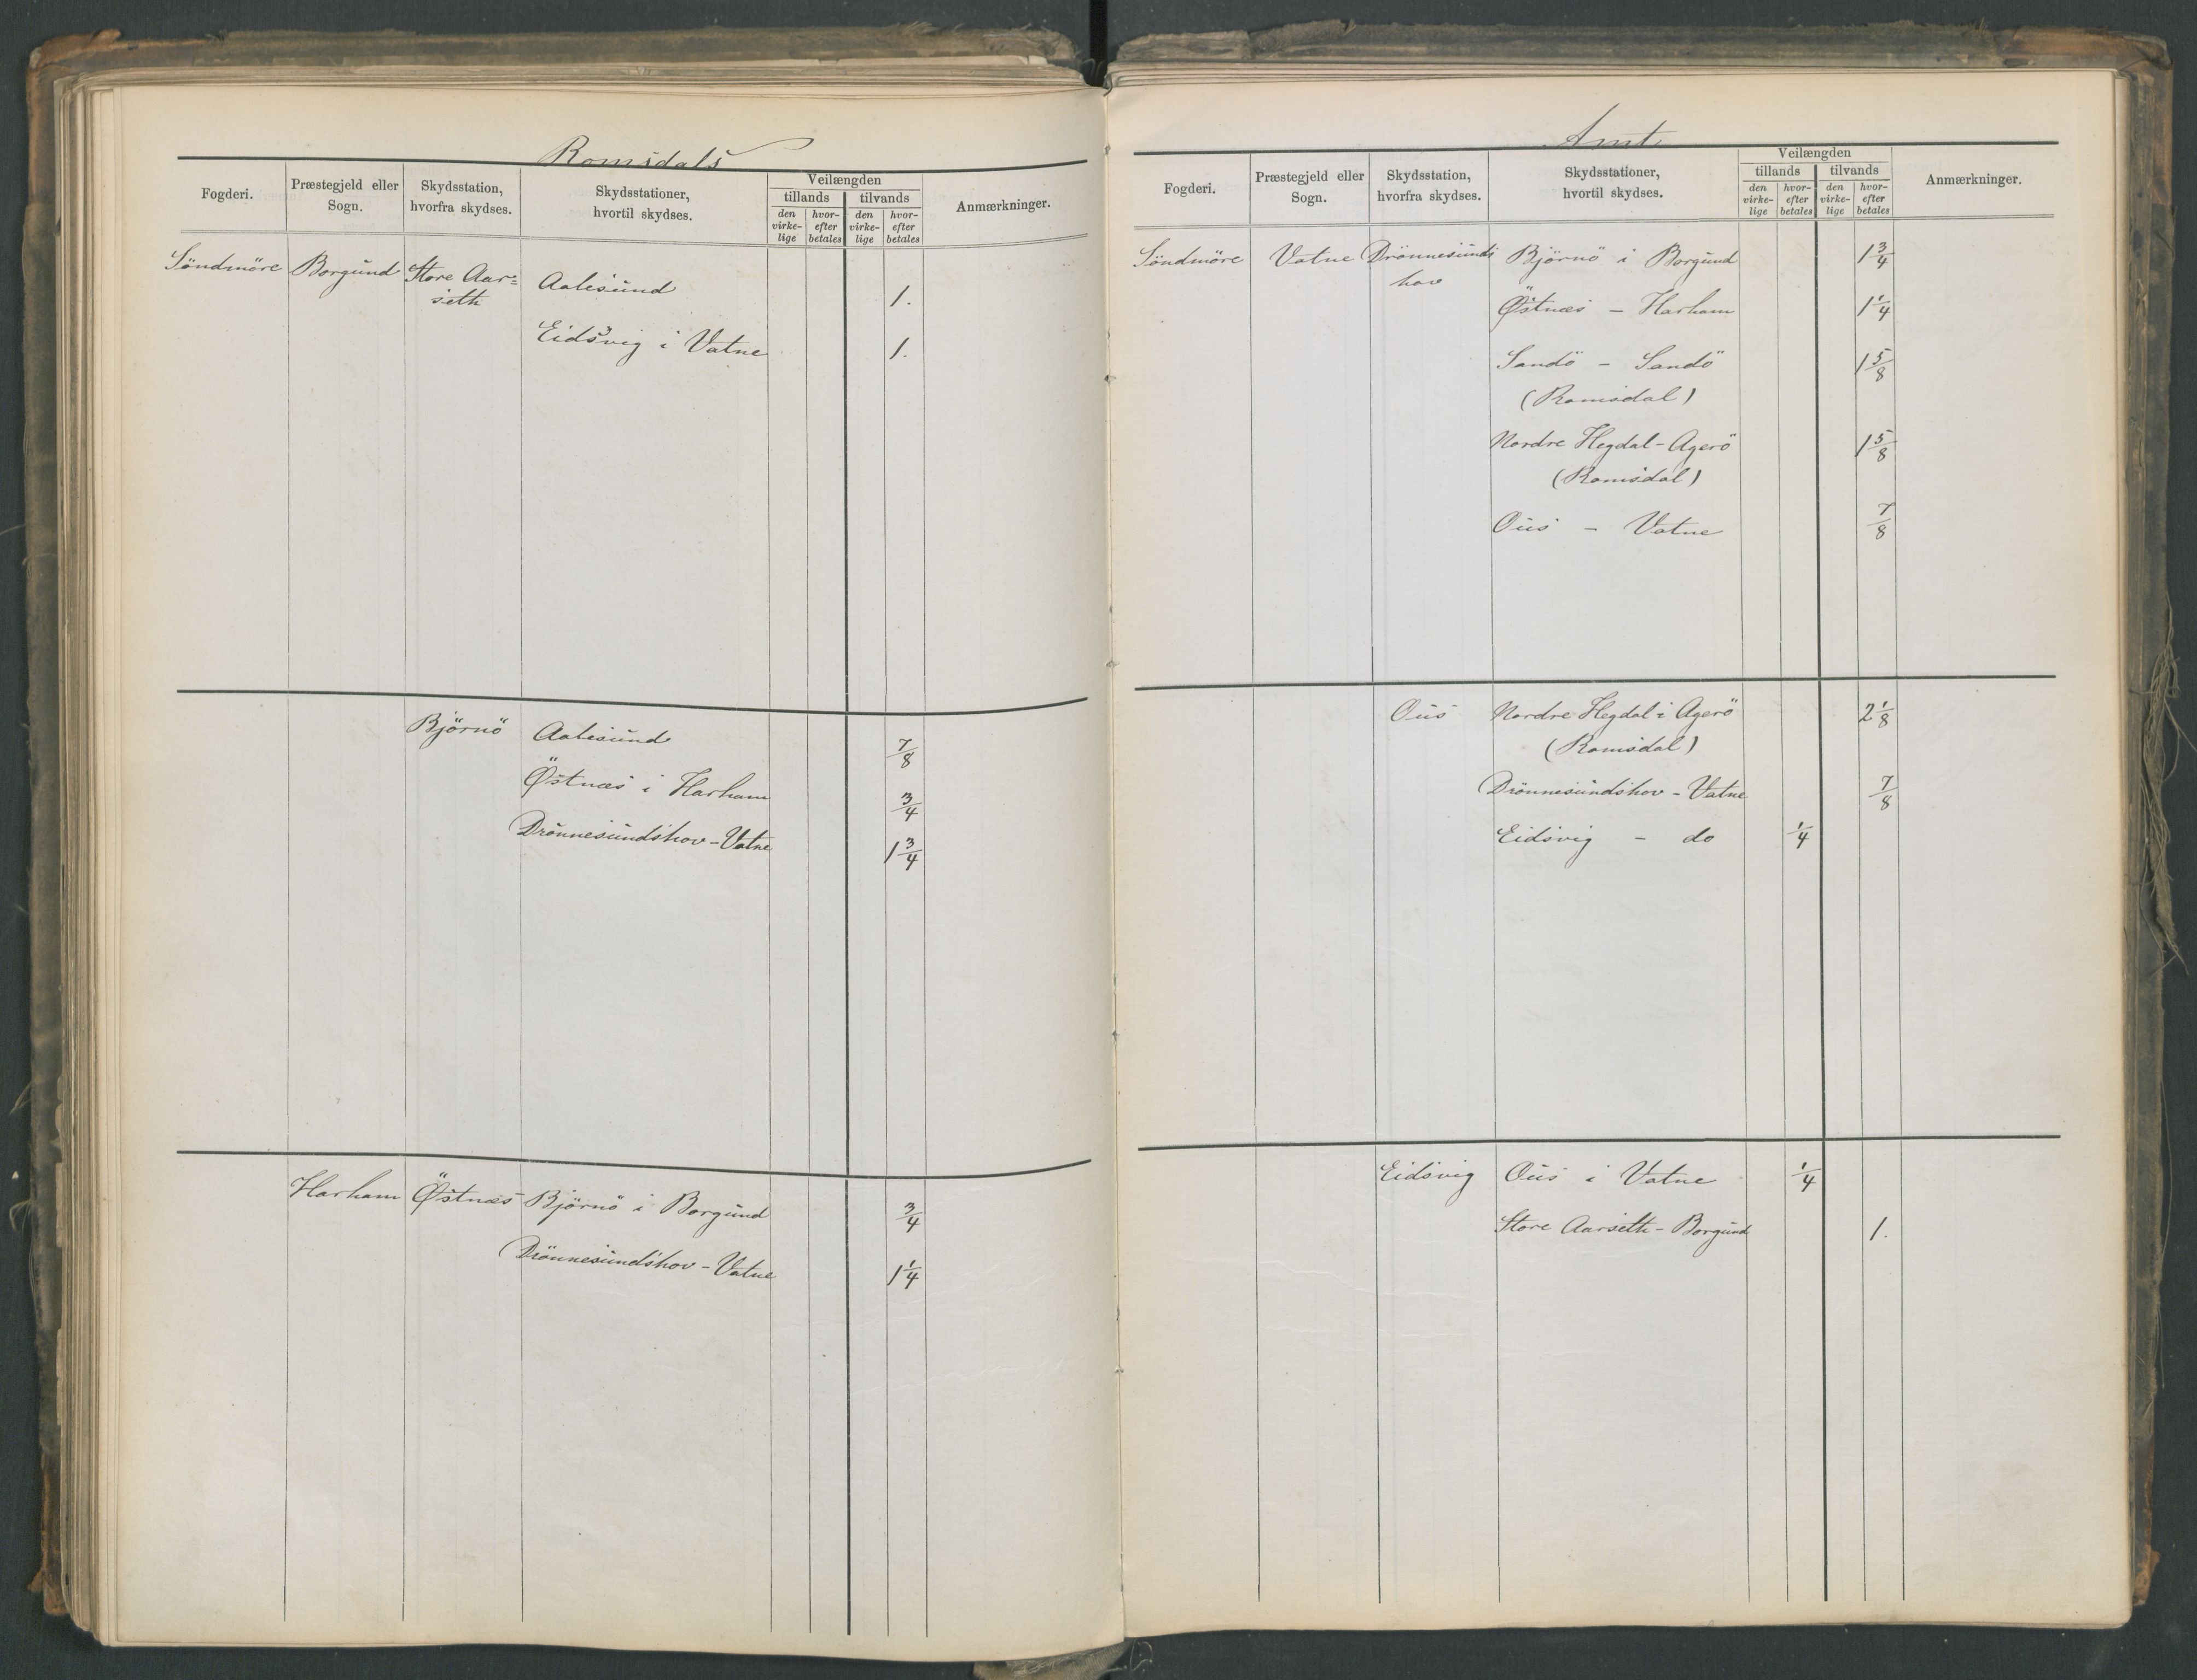 Romsdals
Fogderi. Præstegjeld eller Sogn. Skydsstation, hvorfra skydses. Skydsstationer, hvortil skydses. Veilængden tillands den virke-lige hvor-efter betales tilvands den virke-lige hvor-efter betales Anmærkninger.
Söndmöre Borgund Store Aar=
seth Aalesund 1.
Eidsvig i Vatne 1.
Björnö Aalesund 7/8
Østnæs i Harham 3/4
Drönnesundshov - Vatne 1 3/4
Harham Østnæs Björnö i Borgund 3/4
Drönnesundshov - Vatne 1 1/4
Amt.
Fogderi. Præstegjeld eller Sogn. Skydsstation, hvorfra skydses. Skydsstationer, hvortil skydses. Veilængden tillands den virke-lige hvor-efter betales tilvands den virke-lige hvor-efter betales Anmærkninger.
Söndmöre Vatne Drönnesunds Björnö i Borgund 1 3/4
hov
Østnæs - Harham 1 1/4
Sandö - Sandö 1 5/8
(Romsdal)
Nordre Hegdal - Agerö 1 5/8
(Romsdal)
Ous - Vatne 7/8
Ous Nordre Hegdal i Agerö 2 1/8
(Romsdal)
Drönnesundshov - Vatne 7/8
Eidsvig - do 1/4
Eidsvig Ous i Vatne 1/4
Store Aarseth - Borgund 1.